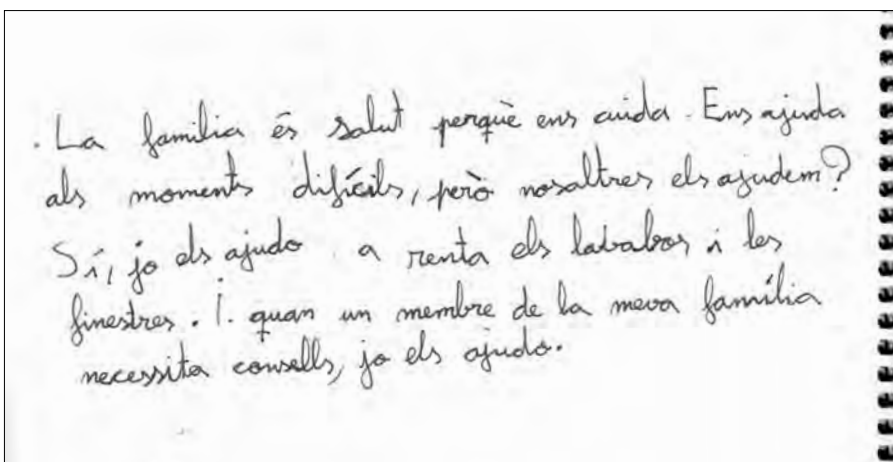 . La familia és salut perquè ens cuida. Ens ajuda
als moments difícils, però nosaltres els ajudem?
Sí, jo els ajudo a renta els lavabos i les
finestres. I. quan un membre de la meva família
necessita consells, jo els ajudo.